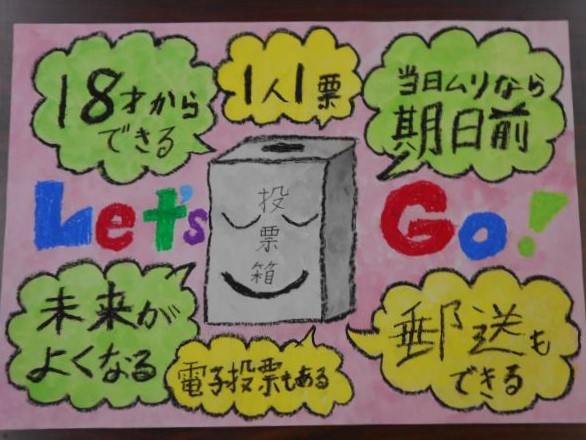 18才から
できる
1人1票
当日ムリなら
期日前
Let's Go!
投票箱
未来が
よくなる
電子投票もある
郵送も
できる